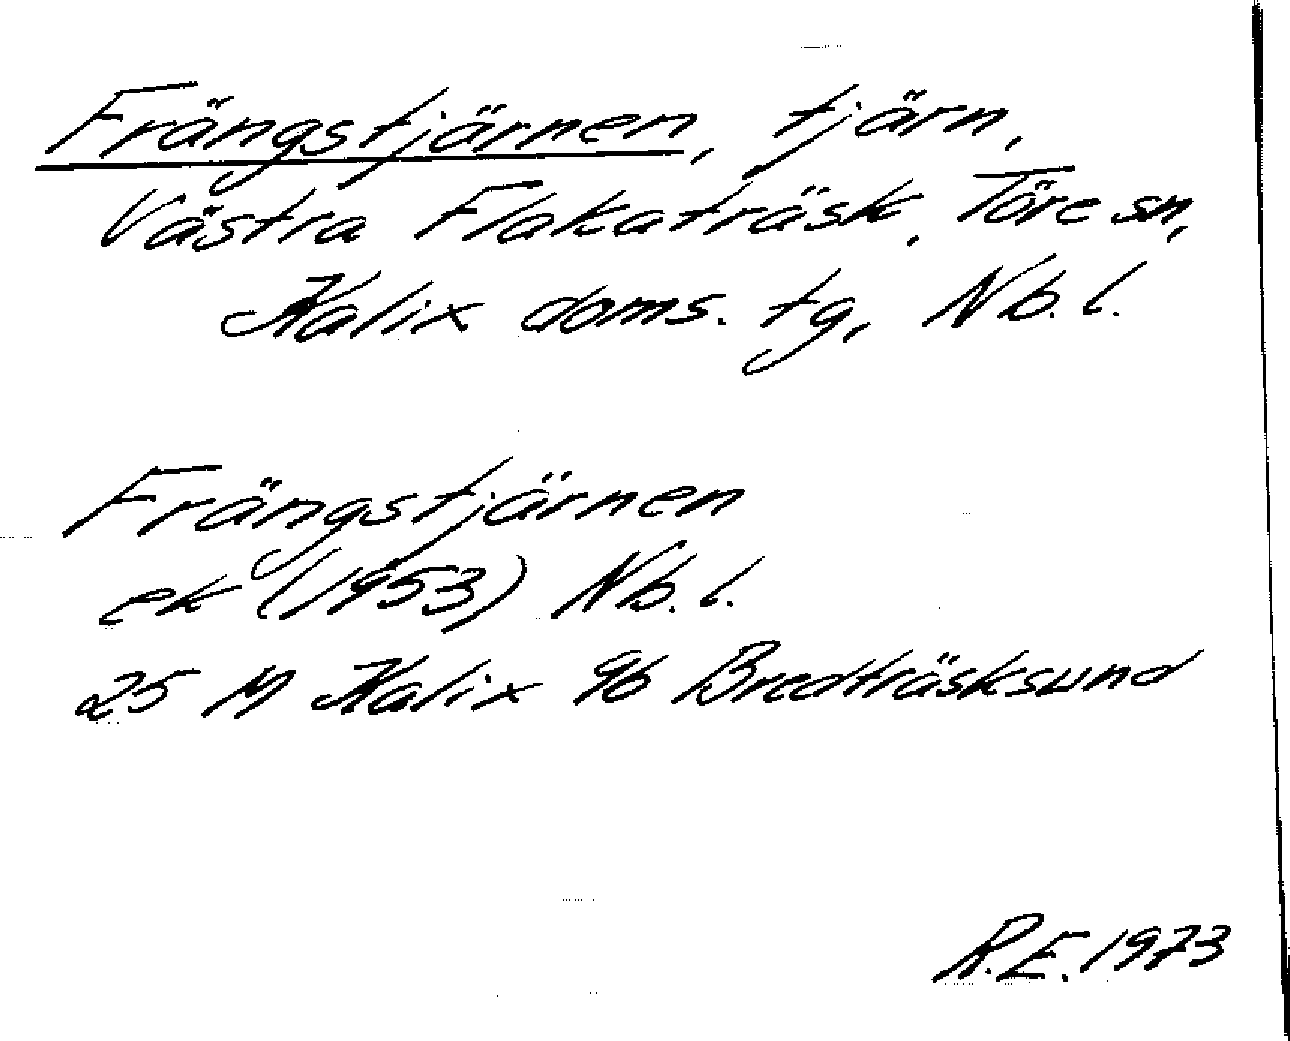 Frängstjärnen, tjärn,
Västra Flakaträsk, Töre sn,
Kalix doms. tg, Nb. l.
Frängstjärnen
ek (1953) Nb. l.
25 M Kalix 9b Bredträsksund
R.E. 1973